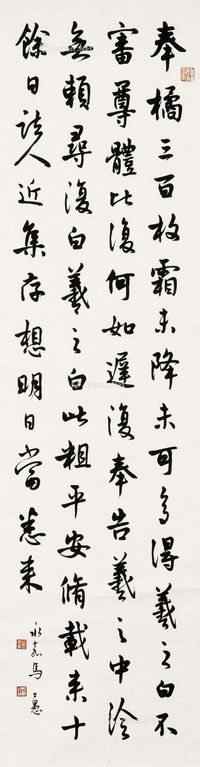 奉橘三百枚霜未降未可多得羲之白不
審尊體比復何如遲復奉告羲之中冷
無賴尋復白羲之白此粗平安脩載来十
餘日諸人近集存想明日當悉来
永嘉馬公愚